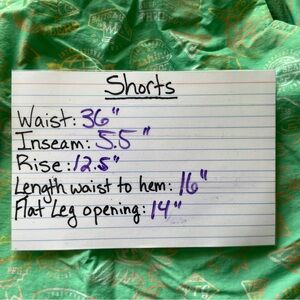 Shorts
Waist: 36"
Inseam: 5.5"
Rise: 12.5"
Length waist to hem: 16"
Flat Leg opening: 14"